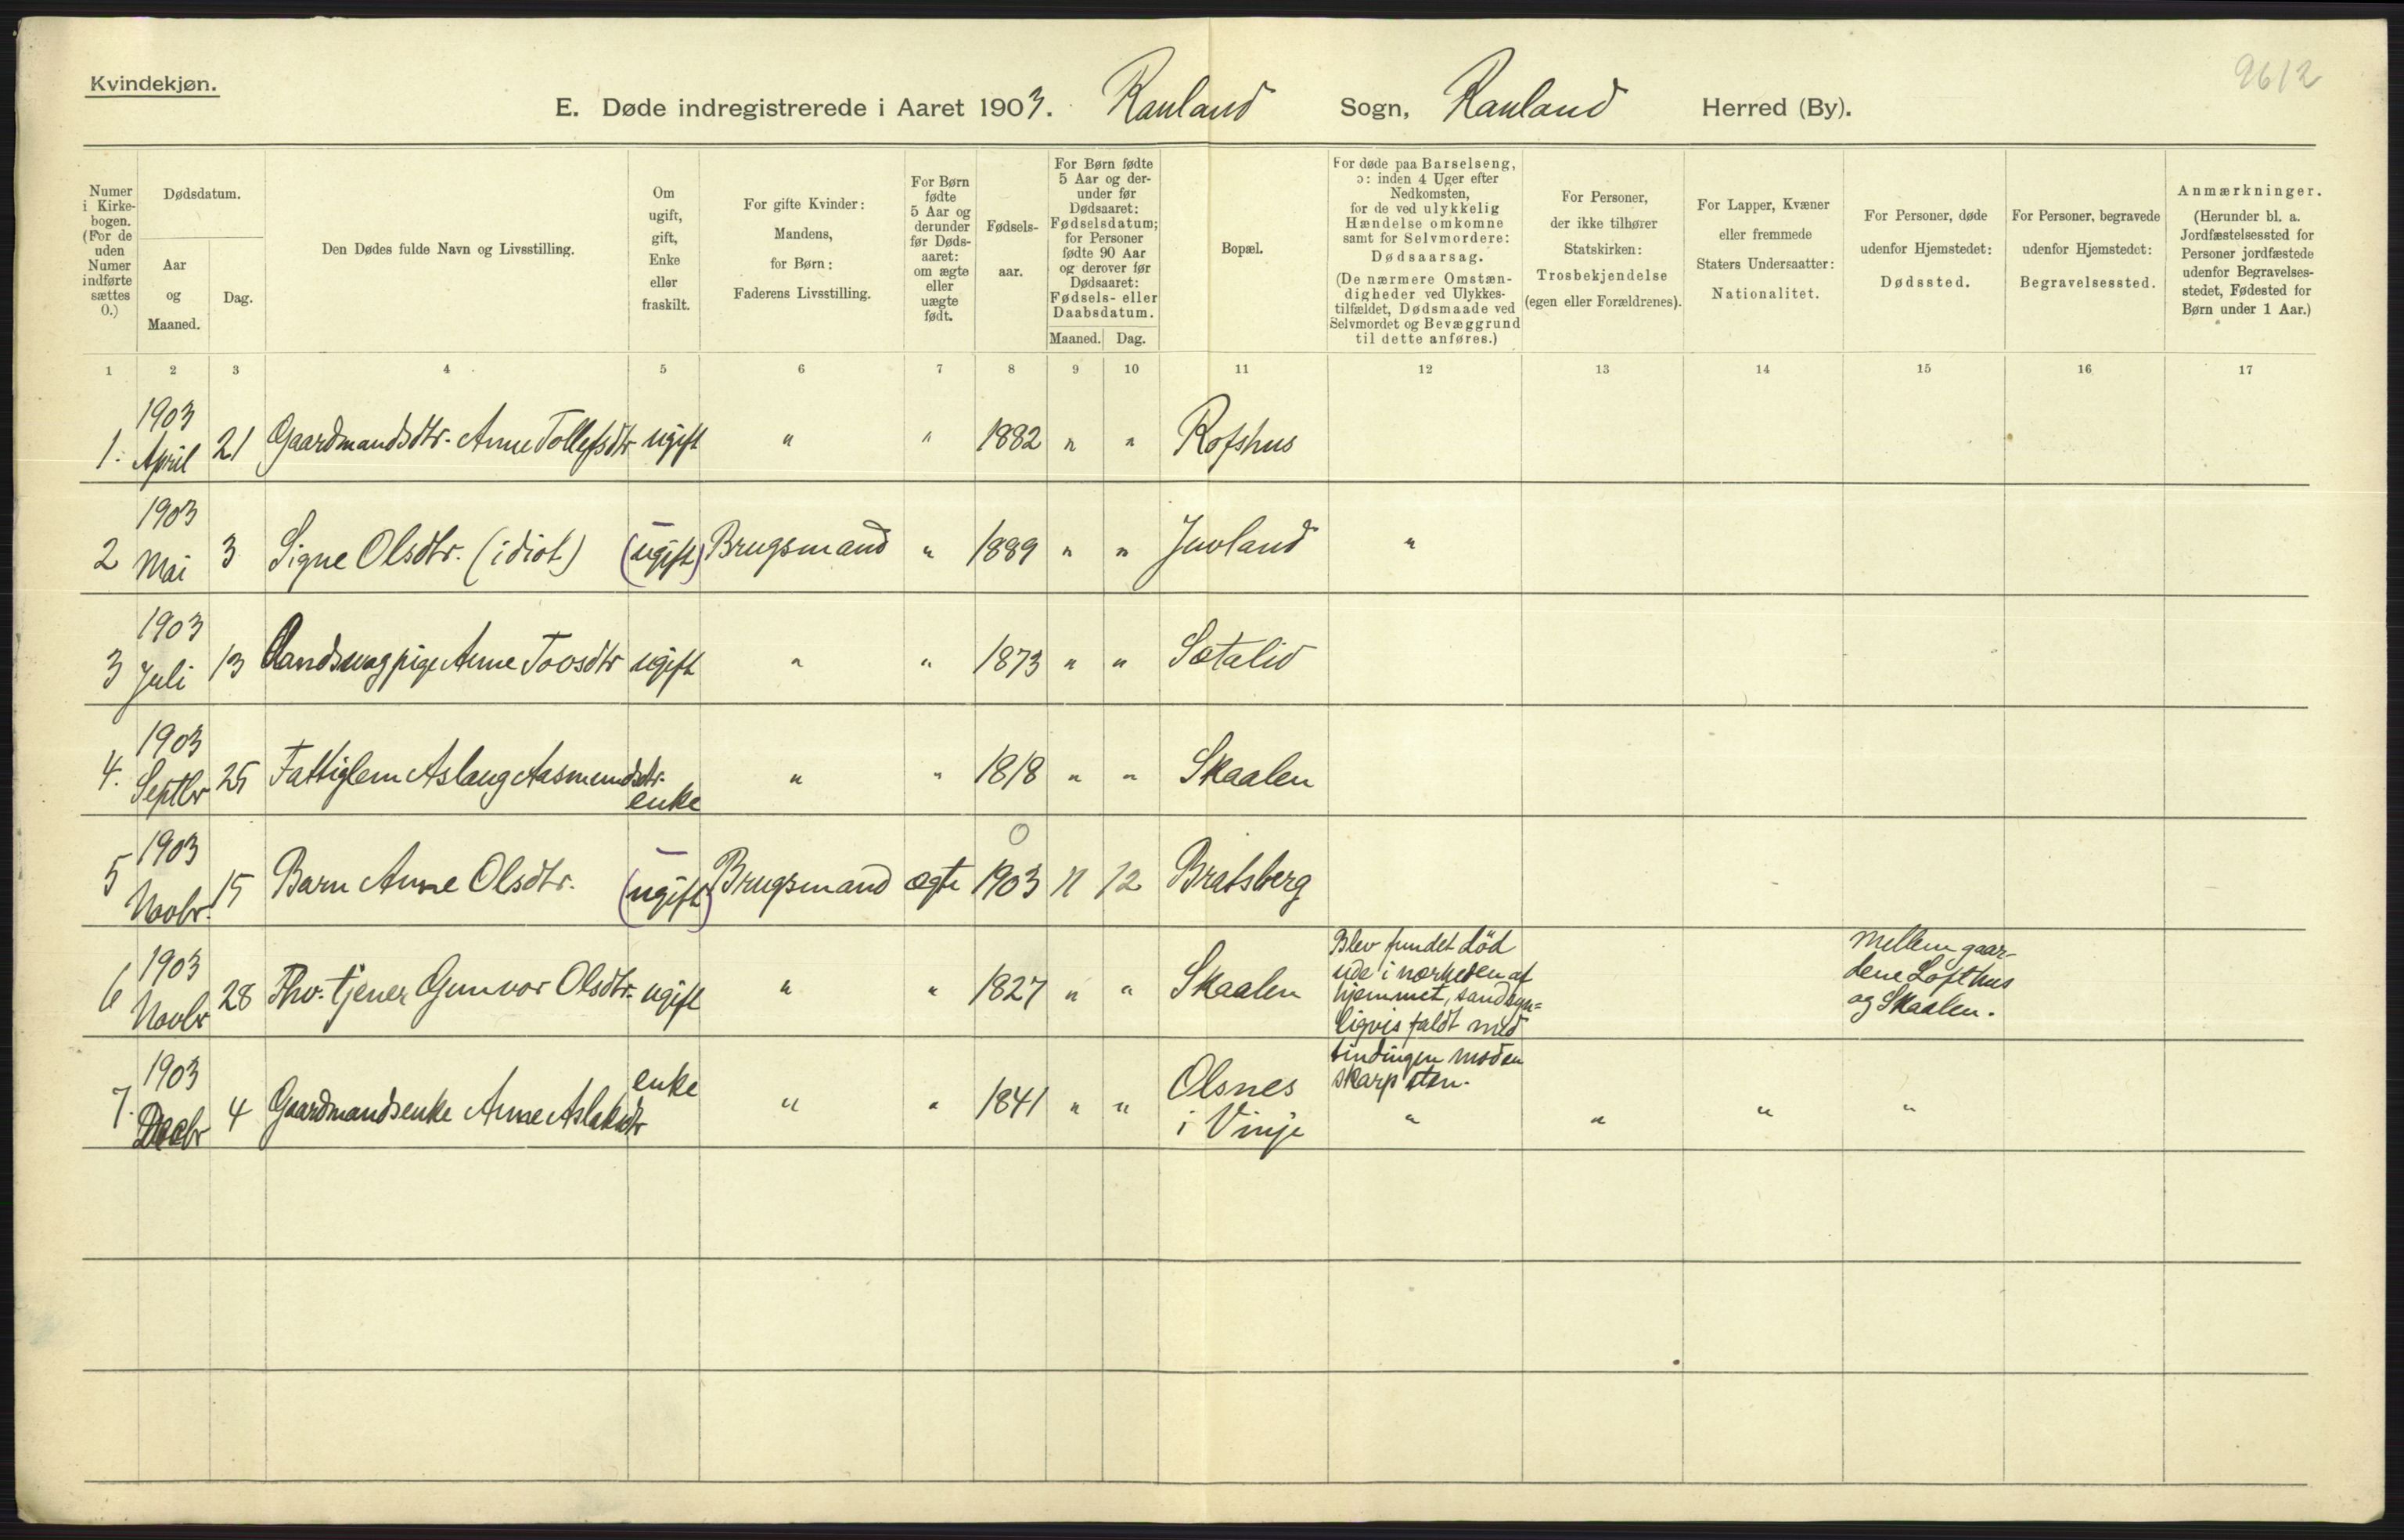 Kvindekjøn.
9612
E. Døde indregistrerede i Aaret 1903. Rauland Sogn, Rauland Herred (By).
Numer i Kirke-bogen. (For de uden Numer indførte sættes 0.)
Dødsdatum.
Aar og Maaned.
Dag.
Den Dødes fulde Navn og Livsstilling.
Om ugift, gift, Enke eller fraskilt.
For gifte Kvinder: Mandens, for Børn: Faderens Livsstilling.
For Børn fødte 5 Aar og derunder før Døds-aaret: om ægte eller uægte født.
Fødsels-aar.
For Børn fødte 5 Aar og der-under før Dødsaaret: Fødselsdatum; for Personer fødte 90 Aar og derover før Dødsaaret: Fødsels- eller Daabsdatum.
Maaned. Dag.
Bopæl.
For døde paa Barselseng, ɔ: inden 4 Uger efter Nedkomsten, for de ved ulykkelig Hændelse omkomne samt for Selvmordere: Dødsaarsag. (De nærmere Omstæn-digheder ved Ulykkes-tilfældet, Dødsmaade ved Selvmordet og Bevæggrund til dette anføres.)
For Personer, der ikke tilhører Statskirken: Trosbekjendelse (egen eller Forældrenes).
For Lapper, Kvæner eller fremmede Staters Undersaatter: Nationalitet.
For Personer, døde udenfor Hjemstedet: Dødssted.
For Personer, begravede udenfor Hjemstedet: Begravelsessted.
Anmærkninger. (Herunder bl. a. Jordfæstelsessted for Personer jordfæstede udenfor Begravelses-stedet, Fødested for Børn under 1 Aar.)
1 2 3 4 5 6 7 8 9 10 11 12 13 14 15 16 17
1. 1903 April 21 Gaardmandsdtr. Anne Tollefsdtr ugift " " 1882 " " Rofshus
2 1903 Mai 3 Signe Olsdtr. (idiot) (ugift) Brugsmand " 1889 " " Juvland "
3 1903 Juli 13 Aandssvag pige Anne Tovsdtr ugift " " 1873 " " Sætalid
4. 1903 Septbr 25 Fattiglem Aslaug Aasmundsdtr. enke " " 1818 " " Skaalen
5 1903 Novbr. 15 Barn Anne Olsdtr. (ugift) Brugsmand ægte 0 1903 11 12 Bratsberg
6 1903 Novbr 28 Fhv. tjener Gunvor Olsdtr. ugift " " 1827 " " Skaalen
Blev fundet død
ude i nærheden af
hjemmet, sandsyn=
ligvis faldt med
tindingen mod en
skarp sten.
mellem gaar-
dene Lofthus
og Skaalen.
7. 1903 Decbr 4 Gaardmandsenke Anne Aslaksdtr enke " " 1841 " " Olsnes
i Vinje " " " "